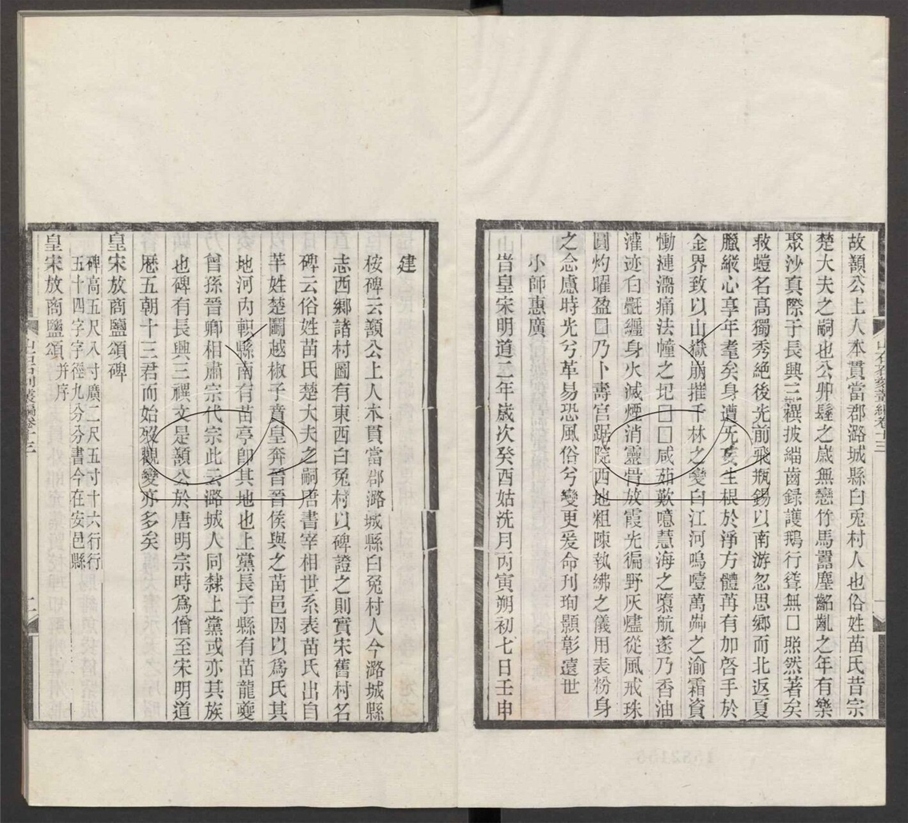 故頴公上人本貫當郡潞城縣白兎村人也俗姓苗氏昔宗
楚大夫之嗣也公丱髽之歲無戀竹馬嚚塵齠齓之年有樂
聚沙真際于長興三禩披緇齒録護鵝行聳無□照然著矣
救螘名髙獨秀絶後光前飛瓶錫以南游忽思鄉而北返夏
臘縱心享年耄矣身遺先妄生根於淨方體苒有加啓手於
金界致以山嶽崩摧千林之變白江河鳴噎萬嵒之渝霜資
慟漣灟痛法幢之圮□□咸茹歎噫慧海之隳航遂乃香油
灌迹白㲲纏身火滅煙消靈骨放霞光徧野灰燼從風戒珠
圓灼曜盈□乃卜壽宮踞院西地粗陳執紼之儀用表粉身
之念慮時光兮革易恐風俗兮變更爰命刋珣顥彰遠世
小師惠廣
旹皇宋明道二年嵗次癸酉姑洗月丙寅朔初七日壬申
建
桉碑云頴公上人本貫當郡潞城縣白兎村人今潞城縣
志西鄉諸村圖有東西白兎村以碑證之則實宋舊村名
碑云俗姓苗氏楚大夫之嗣唐書宰相世系表苗氏出自
芊姓楚鬭越椒子賁皇奔晉晉侯與之苗邑因以爲氏其
地河内軹縣南有苗亭卽其地也上黨長子縣有苗龍夔
曾孫晉卿相肅宗代宗此云潞城人同隸上黨或亦其族
也碑有長興三禩文是頴公於唐明宗時爲僧至宋明道
歴五朝十三君而始歿觀變亦多矣
皇宋放商鹽頌碑
碑高五尺八寸廣二尺五寸十六行行
五十四字字徑九分分書今在安邑縣
皇宋放商鹽頌并序
山右石刻叢編卷十三